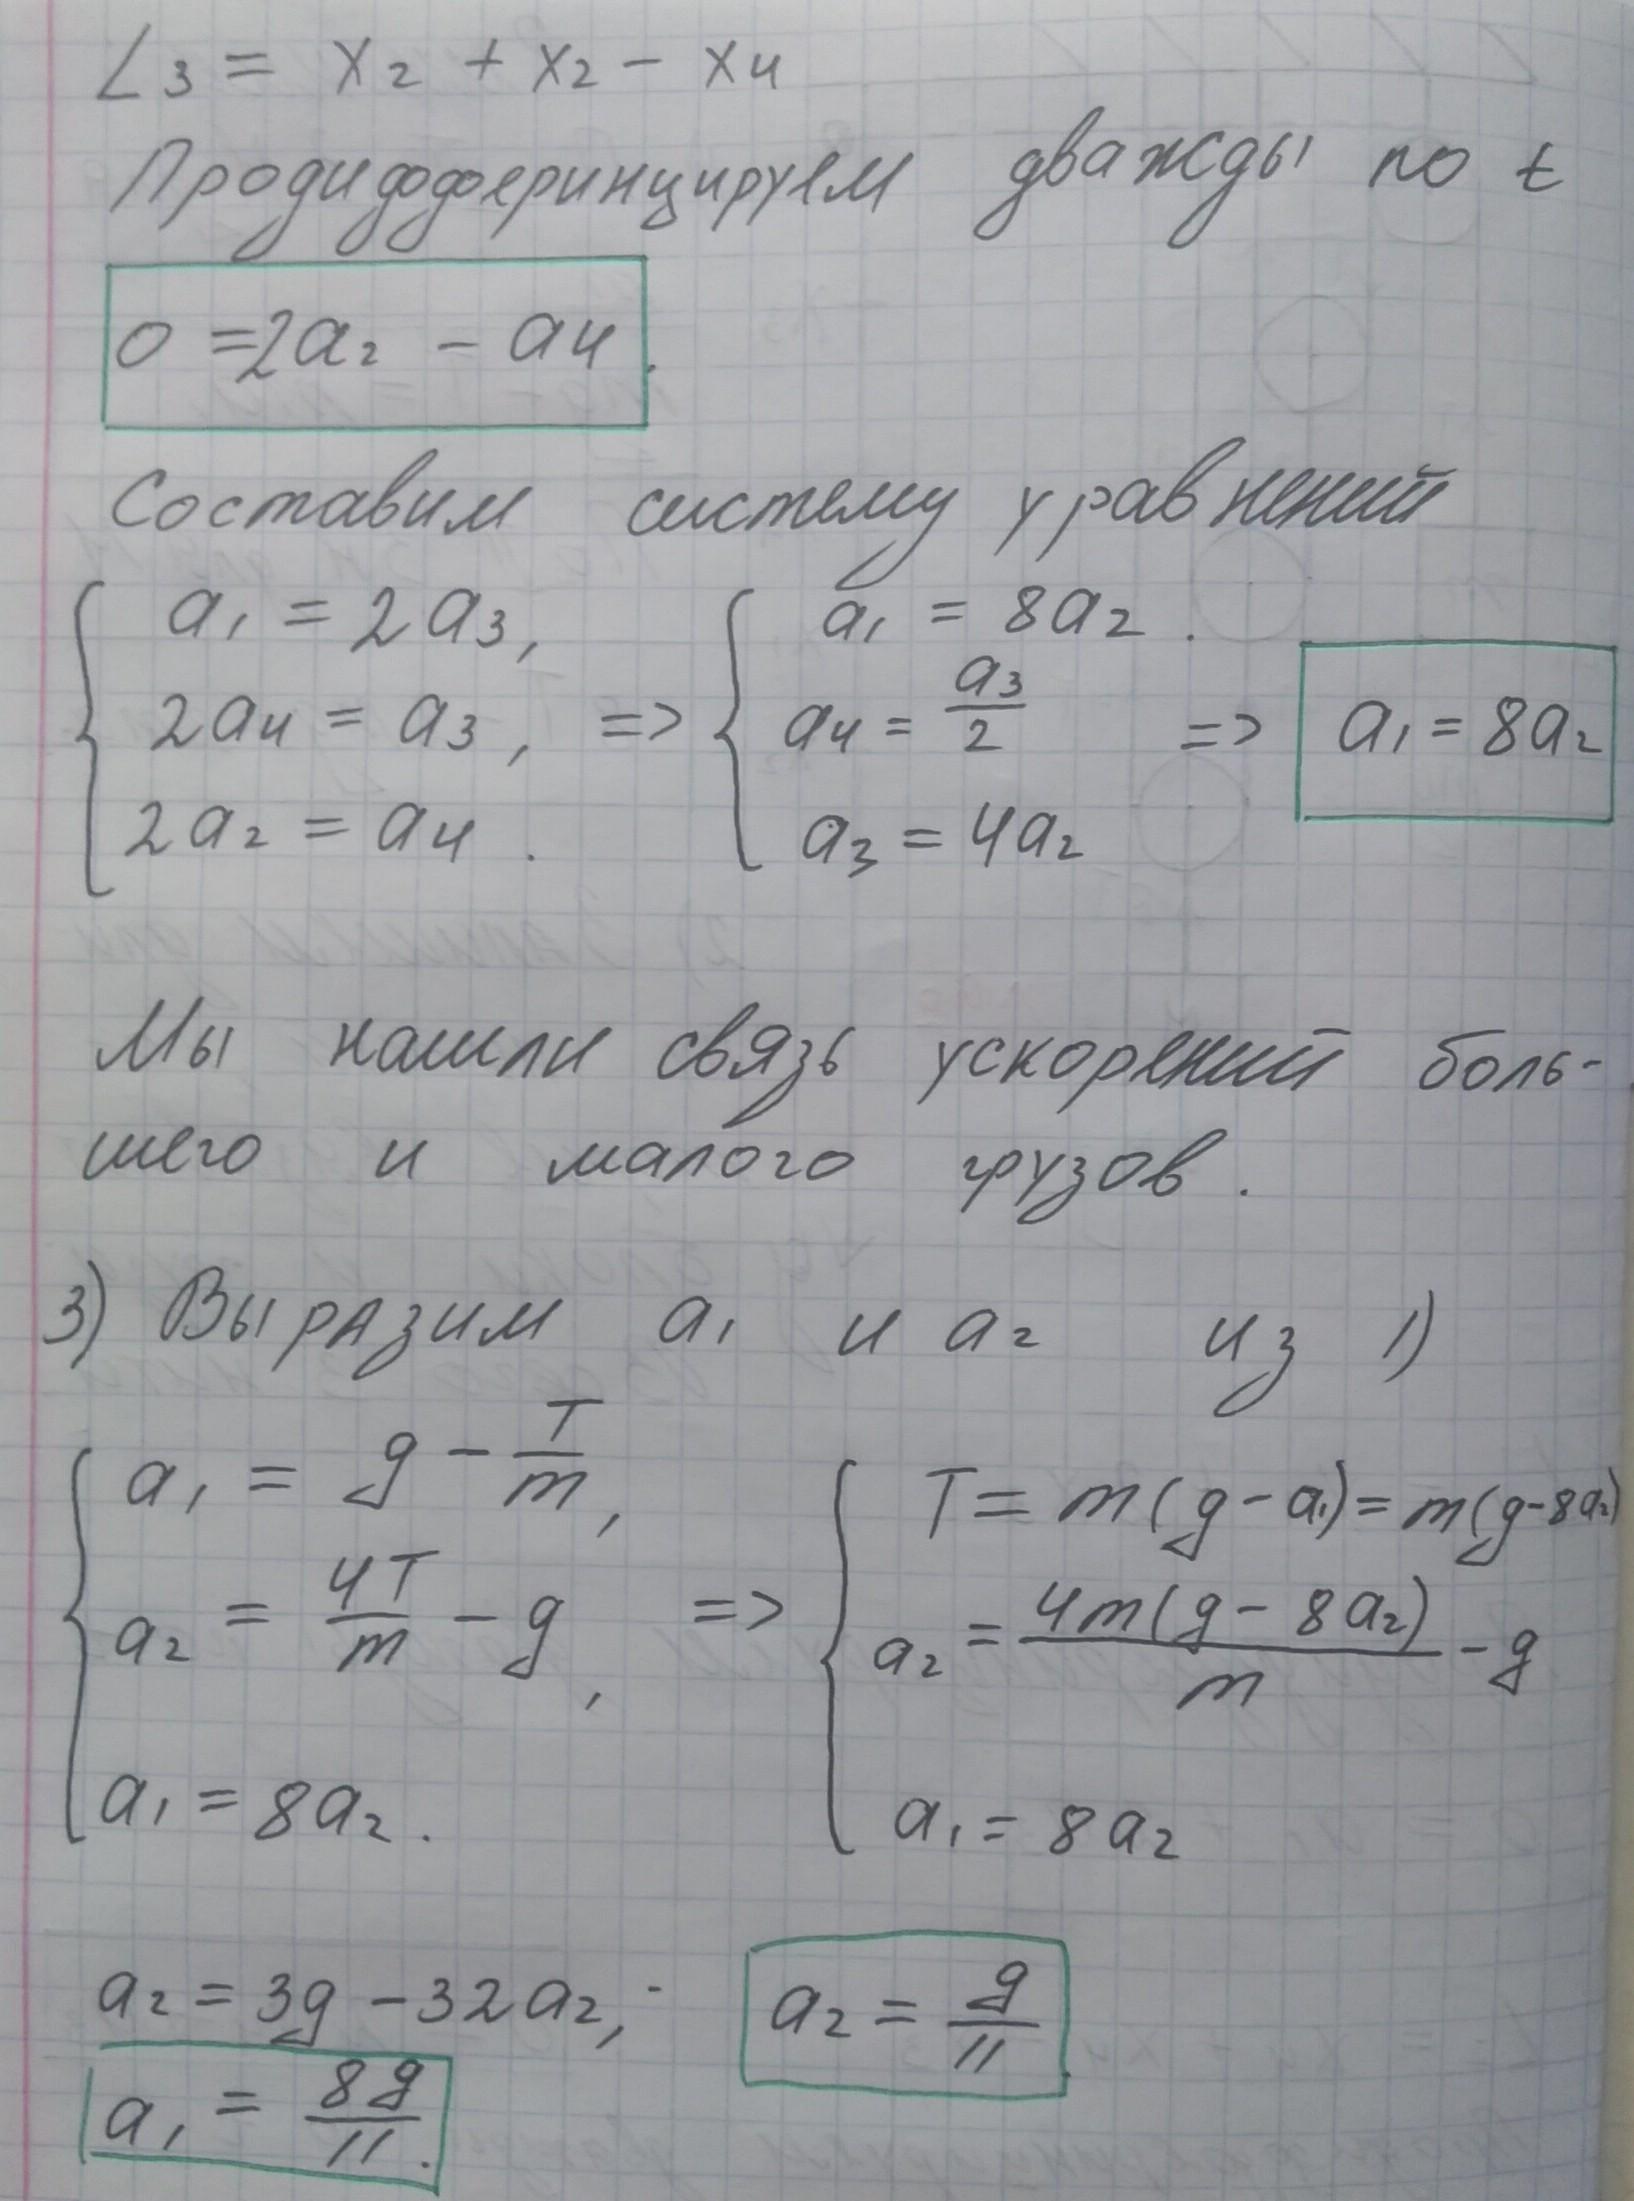 L3 = x2 + x2 - x4
Продифферинцируем дважды по t
0 = 2a2 - a4.
Составим систему уравнений
a1 = 2a3, => a1 = 8a2.
2a4 = a3, a4 = a3/2 => a1 = 8a2
2a2 = a4. a3 = 4a2
Мы нашли связь ускорений боль-
шего и малого грузов.
3) Выразим a1 и a2 из 1)
a1 = g - T/m, T = m(g - a1) = m(g - 8a2)
a2 = 4T/m - g, => a2 = 4m(g - 8a2)/m - g
a1 = 8a2. a1 = 8a2
a2 = 3g - 32a2; a2 = g/11.
a1 = 8g/11.